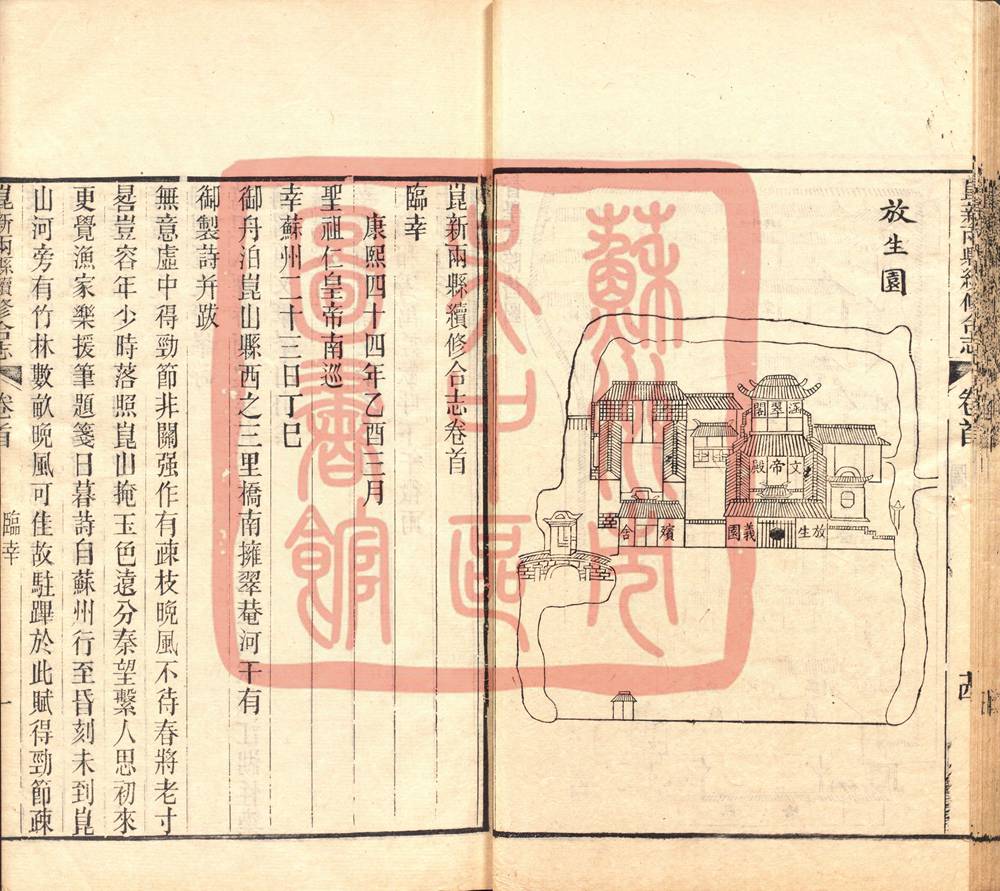 放生園
涵翠閣
文帝殿
放生
義園
殯舍
崑新兩縣續修合志
卷首
崑新兩縣續修合志卷首
臨幸
康熙四十四年乙酉三月
聖祖仁皇帝南巡
幸蘇州二十三日丁巳
御舟泊崑山縣西之三里橋南擁翠菴河干有
御製詩并跋
無意虛中得勁節非關强作有疎枝晩風不待春將老寸
晷豈容年少時落照崑山掩玉色遠分秦望繫人思初來
更覺漁家樂援筆題箋日暮詩自蘇州行至昏刻未到崑
山河旁有竹林數畝晩風可佳故駐蹕於此賦得勁節疎
崑新兩縣續修合志
卷首
臨幸
一
蘇州市吳中區圖書館